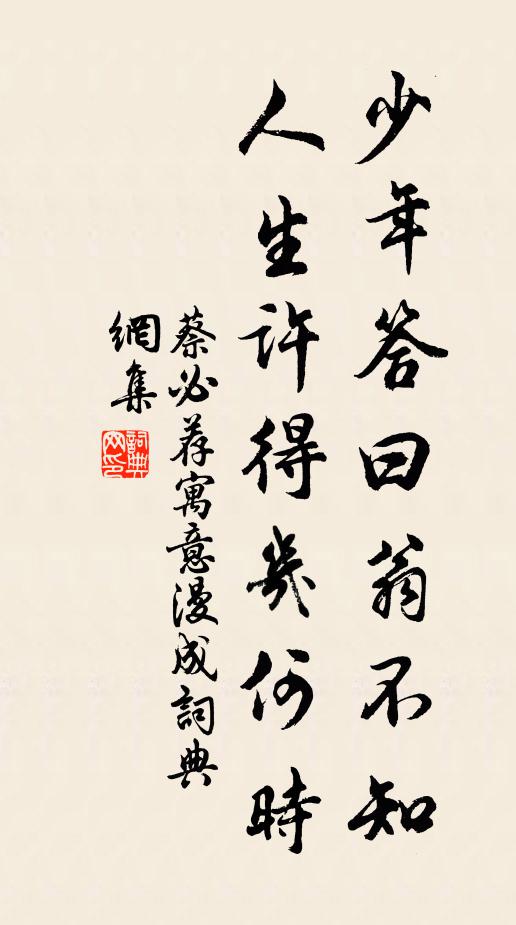 少年答曰翁不知
人生許得幾何時
蔡必荐寓意漫成詞典
網集
詞典
网印